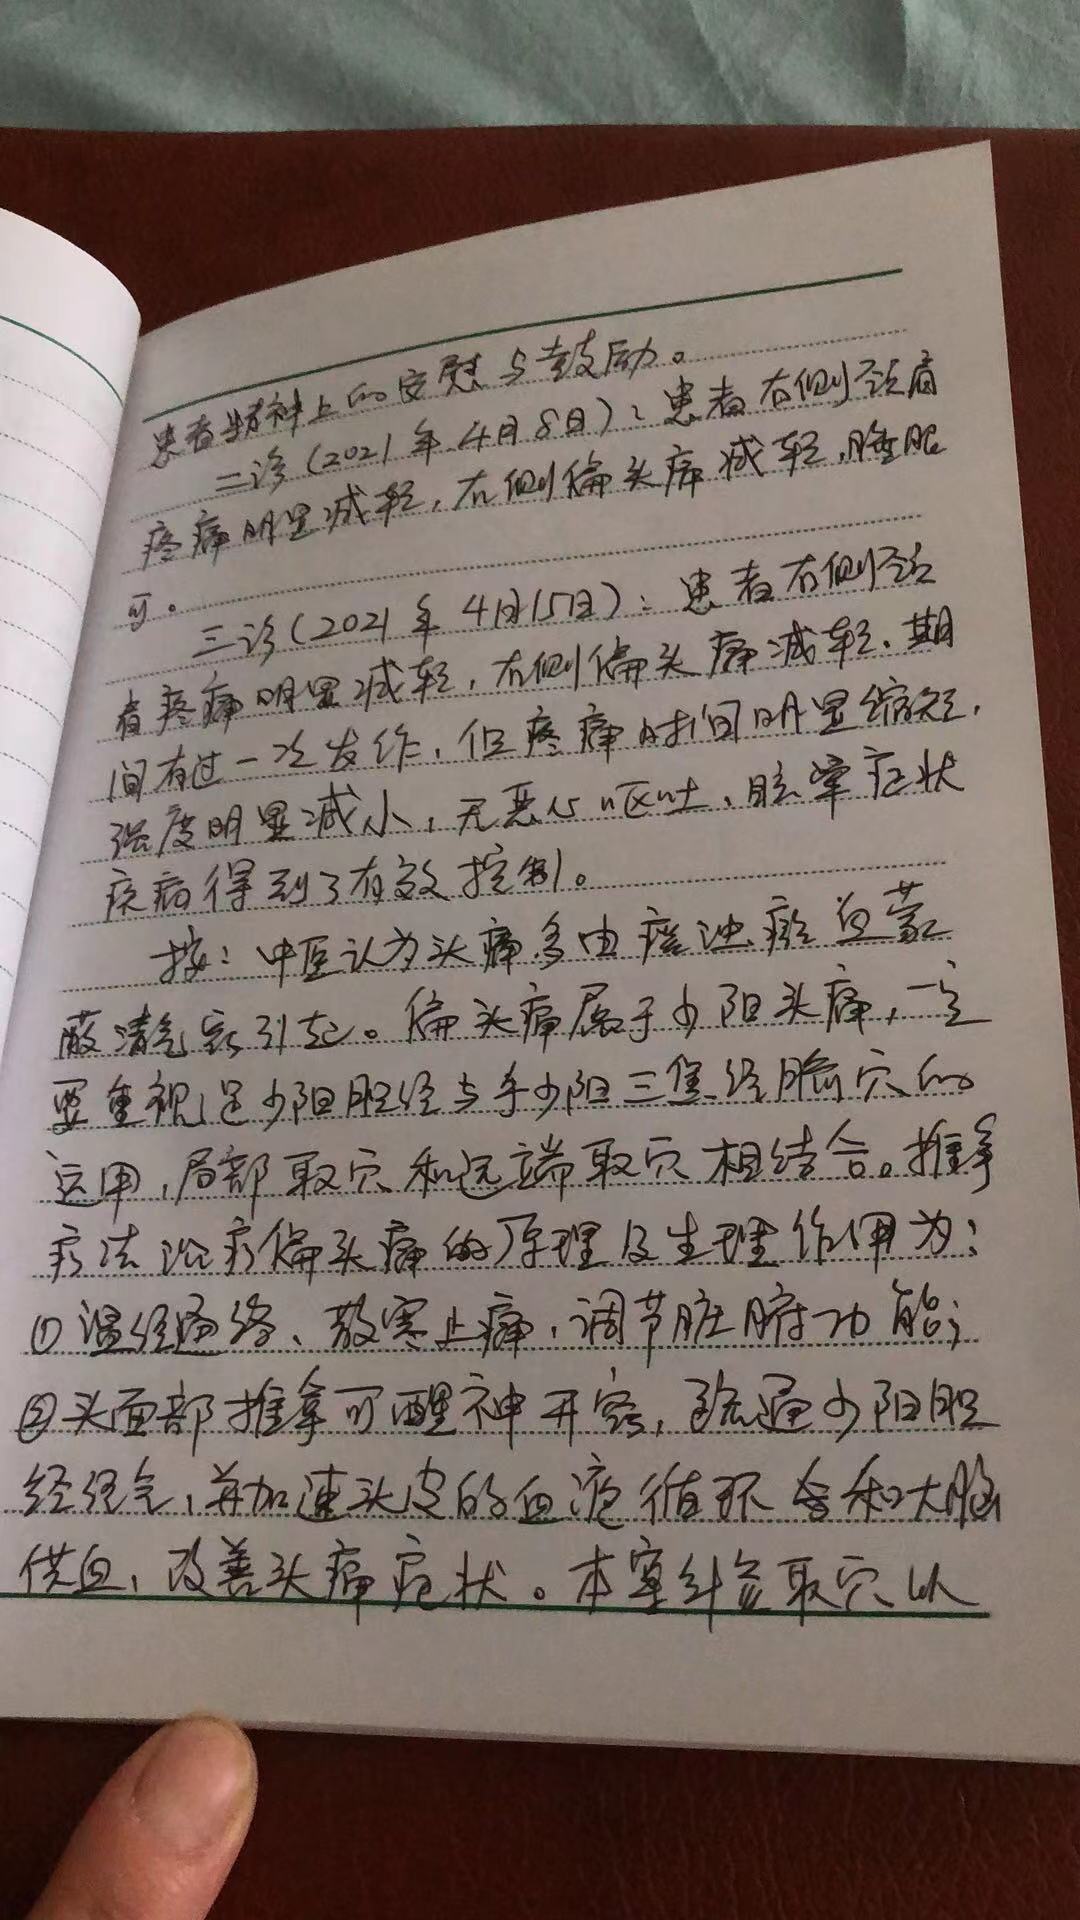 患者精神上的安慰与鼓励。
二诊(2021年4月8日):患者右侧颈肩
疼痛明显减轻,右侧偏头痛减轻,睡眠
可。
三诊(2021年4月15日):患者右侧颈
肩疼痛明显减轻,右侧偏头痛减轻,期
间有过一次发作,但疼痛时间明显缩短,
强度明显减小,无恶心呕吐、眩晕症状
疾病得到了有效控制。
按:中医认为头痛多由痰浊瘀血蒙
蔽清窍引起。偏头痛属于少阳头痛,一定
要重视足少阳胆经与手少阳三焦经腧穴的
运用,局部取穴和远端取穴相结合。推拿
疗法治疗偏头痛的原理及生理作用为:
①温经通络、散寒止痛,调节脏腑功能;
②头面部推拿可醒神开窍,疏通少阳胆
经经气,并加速头皮的血液循环和大脑
供血,改善头痛症状。本案针灸取穴以